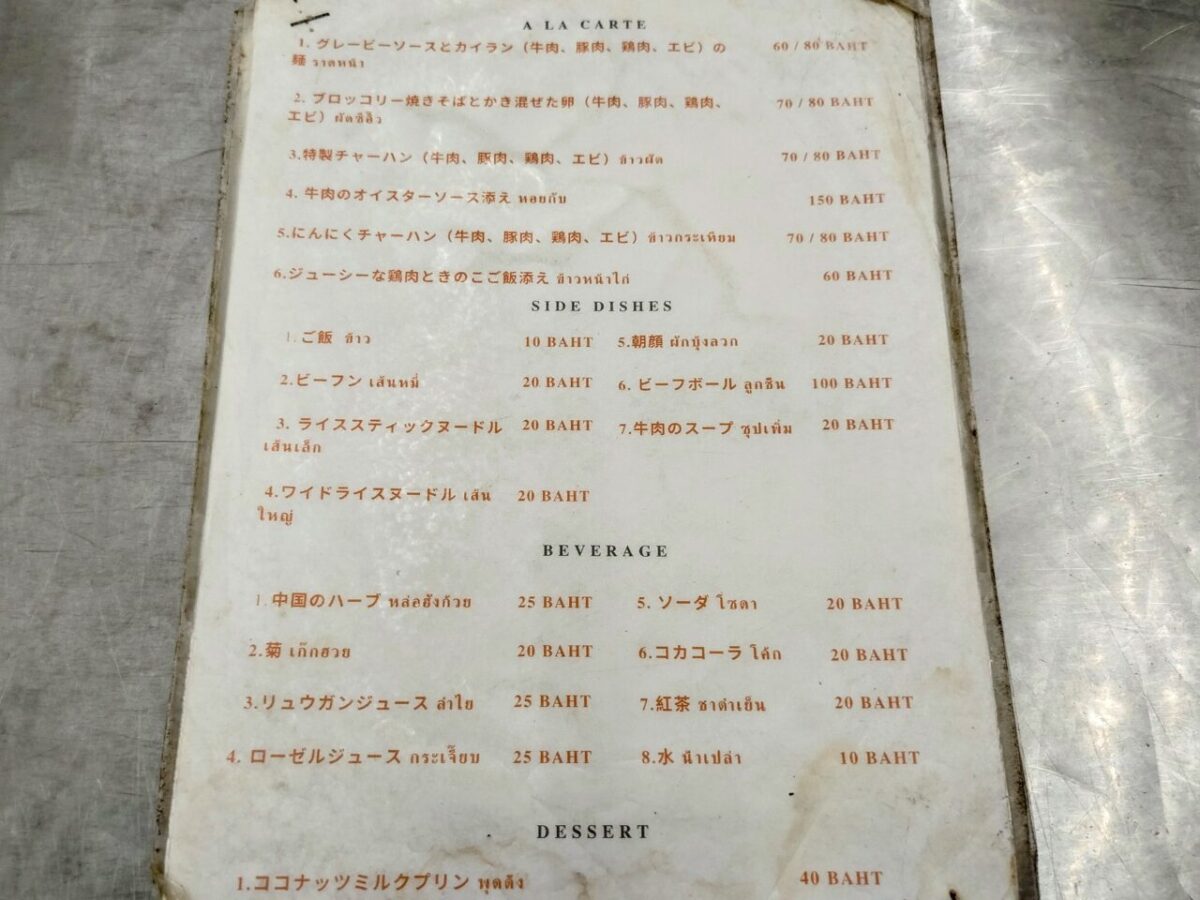 A LA CARTE
1. グレービーソースとカイラン（牛肉、豚肉、鶏肉、エビ）の 60 / 80 BAHT
麺 ราดหน้า
2. ブロッコリー焼きそばとかき混ぜた卵（牛肉、豚肉、鶏肉、 70 / 80 BAHT
エビ）ผัดซีอิ๊ว
3.特製チャーハン（牛肉、豚肉、鶏肉、エビ）ข้าวผัด 70 / 80 BAHT
4. 牛肉のオイスターソース添え หอยกับ 150 BAHT
5.にんにくチャーハン（牛肉、豚肉、鶏肉、エビ）ข้าวกระเทียม 70 / 80 BAHT
6.ジューシーな鶏肉ときのこご飯添え ข้าวหน้าไก่ 60 BAHT
SIDE DISHES
1.ご飯 ข้าว 10 BAHT 5.朝顔 ผักบุ้งลวก 20 BAHT
2.ビーフン เส้นหมี่ 20 BAHT 6. ビーフボール ลูกชิ้น 100 BAHT
3. ライススティックヌードル 20 BAHT 7.牛肉のスープ ซุปเพิ่ม 20 BAHT
เส้นเล็ก
4.ワイドライスヌードル เส้น 20 BAHT
ใหญ่
BEVERAGE
1.中国のハーブ หล่อฮังก๊วย 25 BAHT 5. ソーダ โซดา 20 BAHT
2.菊 เก๊กฮวย 20 BAHT 6.コカコーラ โค้ก 20 BAHT
3.リュウガンジュース ลำไย 25 BAHT 7.紅茶 ชาดำเย็น 20 BAHT
4. ローゼルジュース กระเจี๊ยบ 25 BAHT 8.水 น้ำเปล่า 10 BAHT
DESSERT
1.ココナッツミルクプリン พุดดิ้ง 40 BAHT